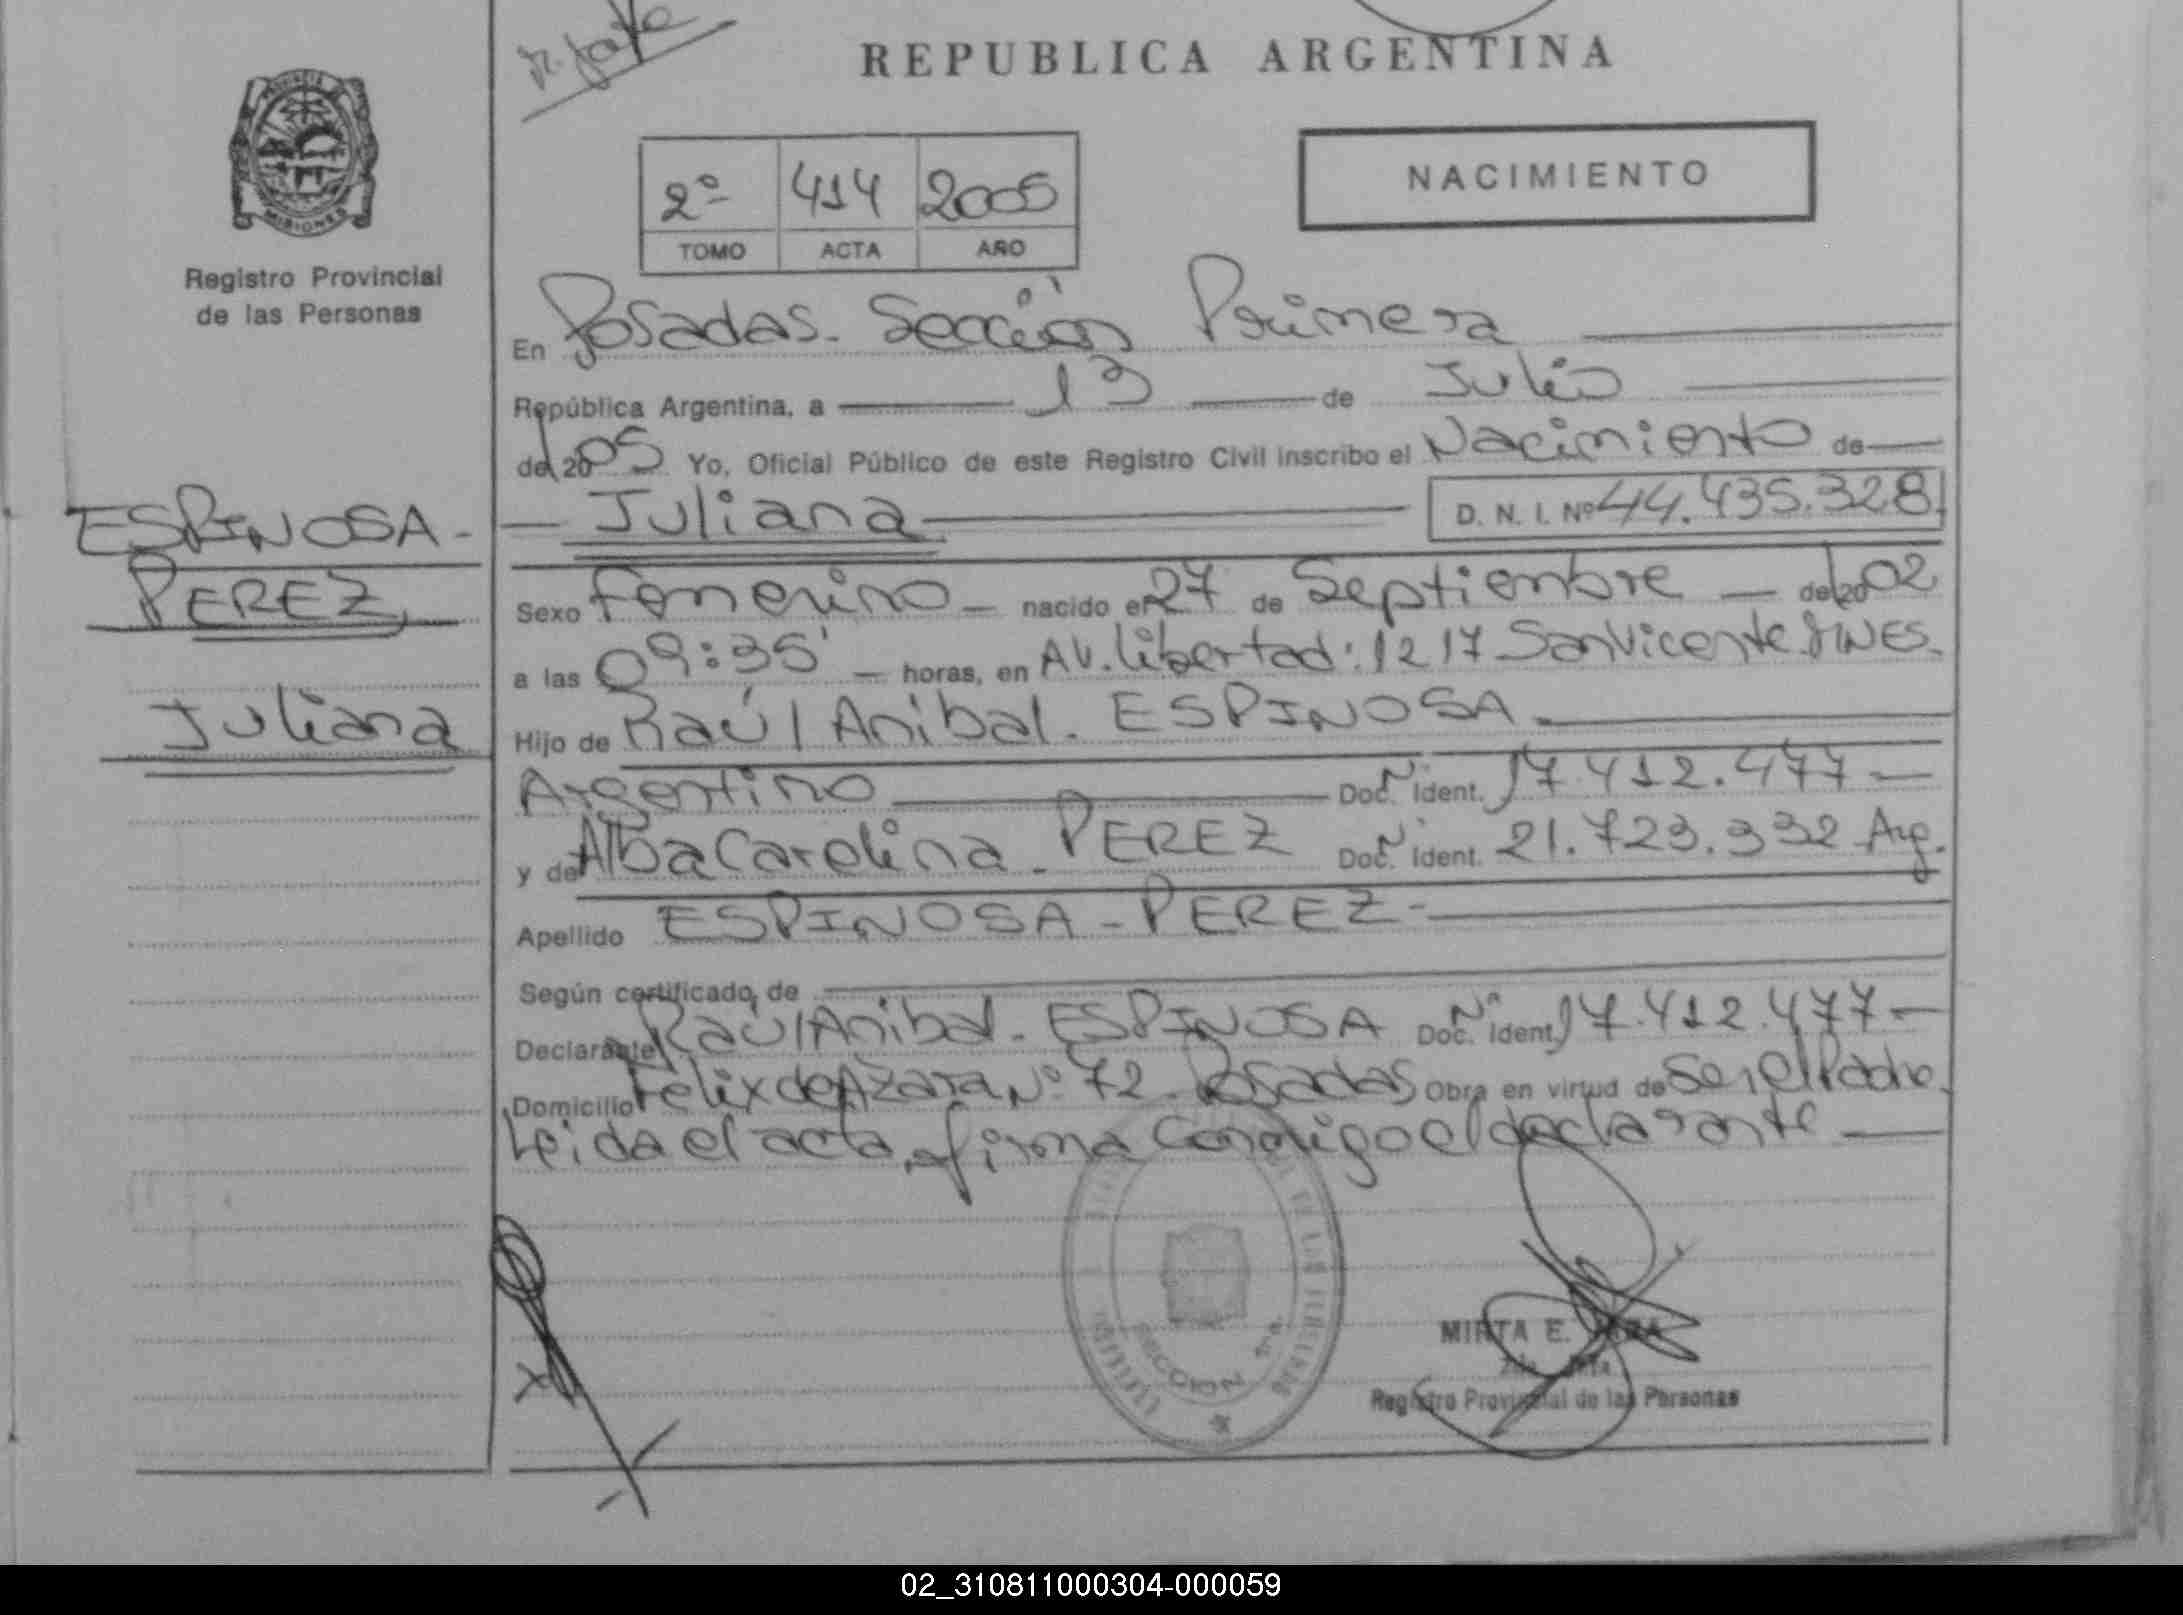 REPUBLICA ARGENTINA
PROVINCIA DE
MISIONES
Registro Provincial
de las Personas
2º 414 2005
TOMO ACTA AÑO
NACIMIENTO
En Posadas. Sección Primera
República Argentina, a 13 de Julio
del 2005 Yo, Oficial Público de este Registro Civil inscribo el Nacimiento de
ESPINOSA-
PEREZ
Juliana
Juliana D. N. I. Nº 44.435.328
Sexo Femenino nacido el 27 de Septiembre del 2002
a las 09:35' horas, en Av. Libertad: 1217 San Vicente. MNES.
Hijo de Raúl Anibal. ESPINOSA
Argentino Doc. Nº Ident. 17.412.477
y de Alba Carolina. PEREZ Doc. Nº Ident. 21.723.332 Arg.
Apellido ESPINOSA-PEREZ-
Según certificado de
Declarante Raúl Anibal. ESPINOSA Doc. Nº Ident. 17.412.477
Domicilio Felix de Azara Nº 72. Posadas Obra en virtud de Ser el Padre.
Leida el acta, firma conmigo el declarante
SECCION 1ra.
MIRTA E.
Registro Provincial de las Personas
02_310811000304-000059